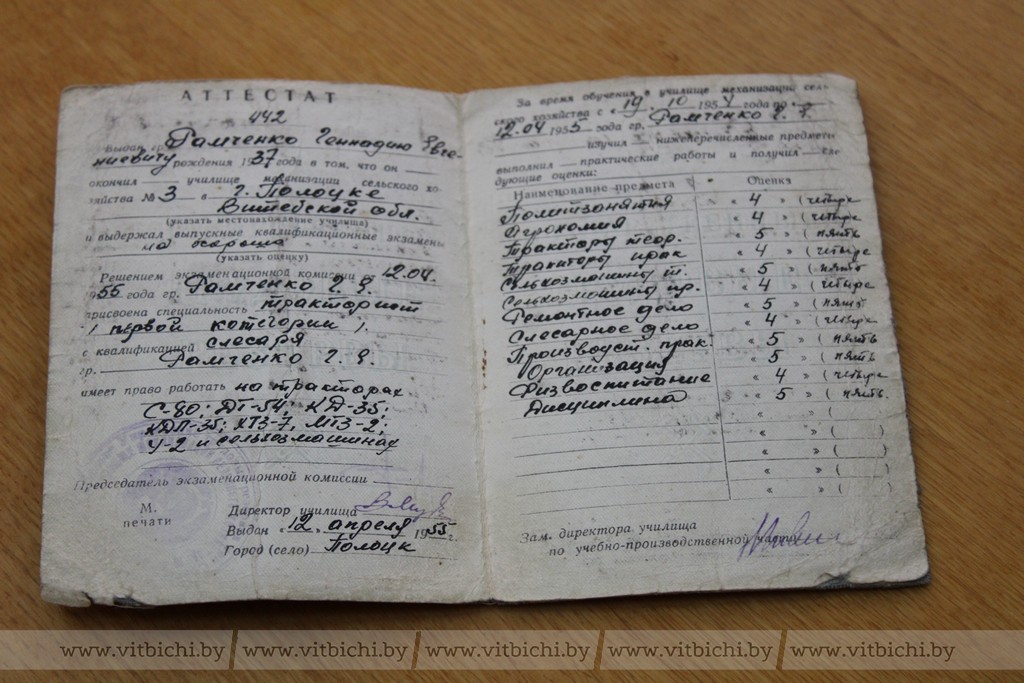 АТТЕСТАТ
442
Выдан гр. Рамченко Геннадию Евге-
ниевичу рождения 1937 года в том, что он
окончил училище механизации сельского хо-
зяйства № 3 в г. Полоцке
Витебской обл.
(указать местонахождение училища)
и выдержал выпускные квалификационные экзамены
на хорошо
(указать оценку)
Решением экзаменационной комиссии с 12.04.
1955 года гр. Рамченко Г. Е.
присвоена специальность тракторист
( первой категории ).
с квалификацией слесаря
гр. Рамченко Г. Е.
имеет право работать на тракторах
С-80; ДТ-54; КД-35;
КДП-35; ХТЗ-7, МТЗ-2;
У-2 и сельхозмашинах
Председатель экзаменационной комиссии
М.
печати
Директор училища
Выдан «12» апреля 1955 г.
Город (село) Полоцк
За время обучения в училище механизации сель-
ского хозяйства с «19» 10 1954 года по
12.04 1955 года гр. Рамченко Г. Е.
изучил нижеперечисленные предметы
выполнил практические работы и получил сле-
дующие оценки:
Наименование предмета Оценка
Политзанятия « 4 » (четыре
Агрономия « 4 » (четыре
Тракторы теор. « 5 » (пять
Тракторы прак « 4 » (четыре
Сельхозмашины т. « 5 » (пять
Сельхозмашины пр. « 4 » (четыре
Ремонтное дело « 5 » (пять
Слесарное дело « 4 » (четыре
Производст. прак. « 5 » (пять
Организация « 5 » (пять
Физвоспитание « 4 » (четыре
Дисциплина « 5 » (пять
« » ( )
« » ( )
« » ( )
« » ( )
Зам. директора училища
по учебно-производственной части
www.vitbichi.by / www.vitbichi.by / www.vitbichi.by / www.vitbichi.by / www.vitbichi.by